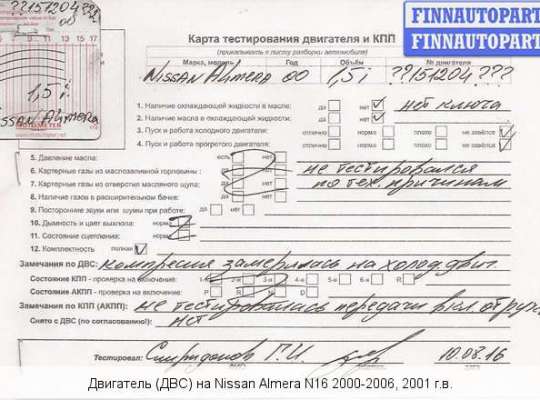 ??151204??
00
FINNAUTOPART
FINNAUTOPART
7 9 11 13 15 17
1,5i
Nissan Almera
Карта тестирования двигателя и КПП
(прикалывать к листу разборки автомобиля)
Марка, модель Год Объём № двигателя
Nissan Almera 00 1,5i ??151204???
1. Наличие охлаждающей жидкости в масле: да нет нет ключа
2. Наличие масла в охлаждающей жидкости: да нет
3. Пуск и работа холодного двигателя: отлично норма плохо не завёлся
4. Пуск и работа прогретого двигателя: отлично норма плохо не завёлся
5. Давление масла: есть нет
6. Картерные газы из маслозаливной горловины: да нет не тестировался
7. Картерные газы из отверстия масляного щупа: да нет по тех. причинам
8. Наличие газов в расширительном бачке: да нет
9. Посторонние звуки или шумы при работе: да нет
10. Дымность и цвет выхлопа: норма
11. Состояние сцепления: норма
12. Комплектность полная
Замечания по ДВС: компрессия замерялась на холод. двиг.
Состояние КПП - проверка на включение: 1-я 2-я 3-я 4-я 5-я 6-я R
Состояние АКПП - проверка на включение: P R N D
Замечания по КПП (АКПП): не тестировалась передачи вкл. от руки
Снято с ДВС (по согласованию!): нет
Тестировал: Спиридонов Г.И. 10.08.16
Двигатель (ДВС) на Nissan Almera N16 2000-2006, 2001 г.в.